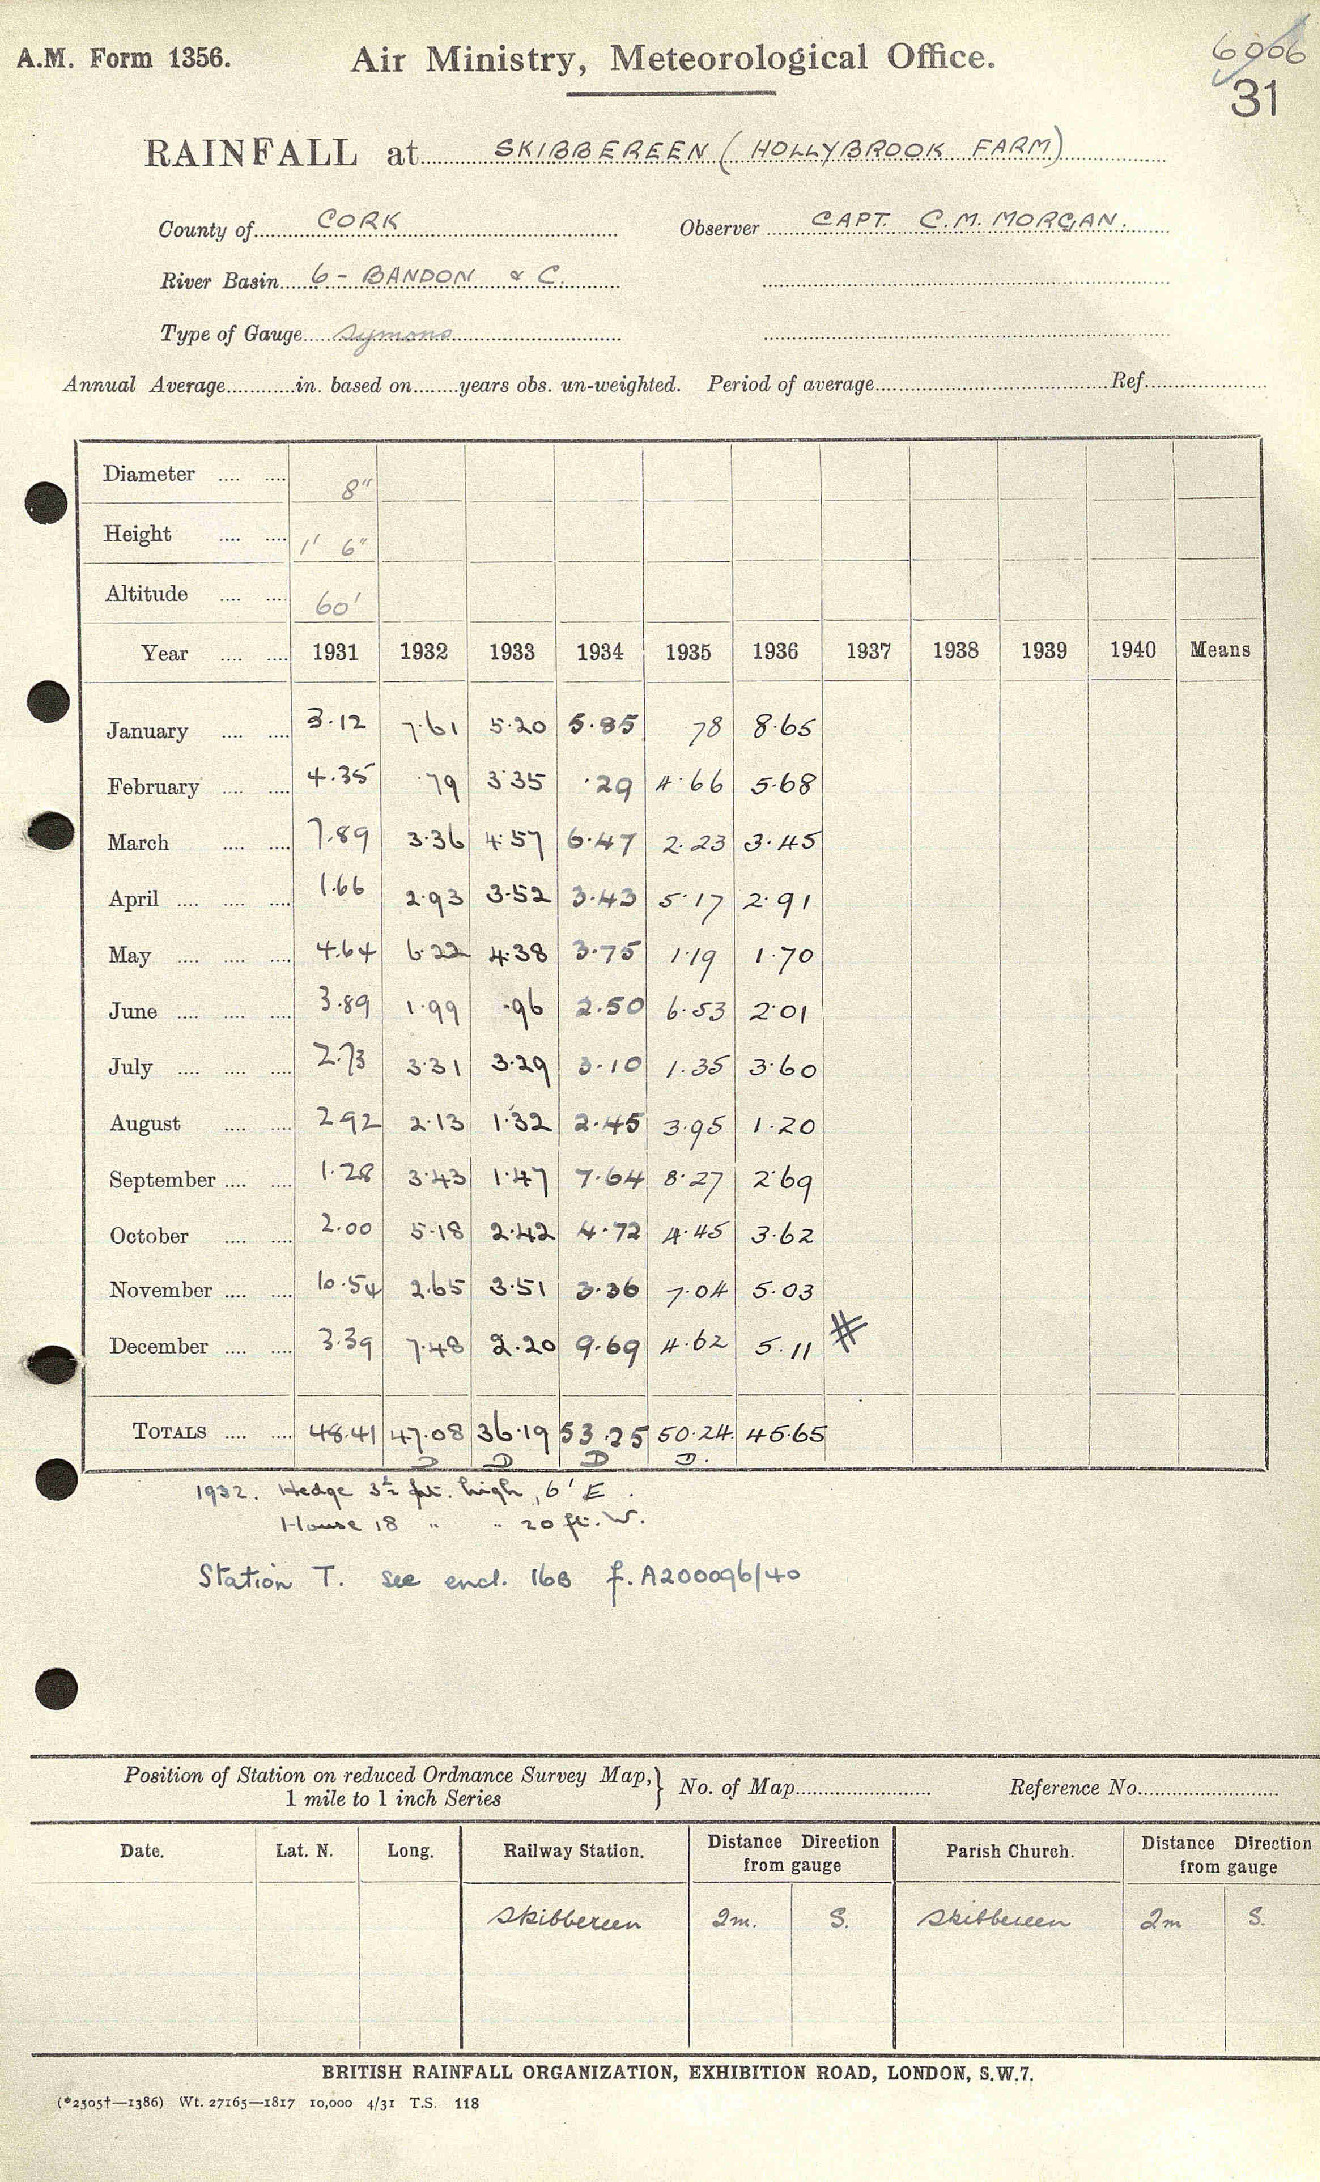 A.M. Form 1356. Air Ministry, Meteorological Office. 6006
31
RAINFALL at SKIBBEREEN (HOLLYBROOK FARM)
County of CORK Observer CAPT. C.M. MORGAN.
River Basin 6 - BANDON & C.
Type of Gauge Symons
Annual Average in. based on years obs. un-weighted. Period of average Ref.
Diameter 8"
Height 1' 6"
Altitude 60'
Year 1931 1932 1933 1934 1935 1936 1937 1938 1939 1940 Means
January 3.12 7.61 5.20 5.85 78 8.65
February 4.35 .79 3.35 .29 4.66 5.68
March 7.89 3.36 4.57 6.47 2.23 3.45
April 1.66 2.93 3.52 3.43 5.17 2.91
May 4.64 6.22 4.38 3.75 1.19 1.70
June 3.89 1.99 .96 2.50 6.53 2.01
July 2.73 3.31 3.29 3.10 1.35 3.60
August 2.92 2.13 1.32 2.45 3.95 1.20
September 1.28 3.43 1.47 7.64 8.27 2.69
October 2.00 5.18 2.42 4.72 4.45 3.62
November 10.54 2.65 3.51 3.36 7.04 5.03
December 3.39 7.48 2.20 9.69 4.62 5.11 #
TOTALS 48.41 47.08 36.19 53.25 50.24 45.65
D D D D.
1932. Hedge 3½ ft. high, 6' E.
House 18 " " 20 ft. W.
Station T. see encl. 16B f. A200096/40
Position of Station on reduced Ordnance Survey Map, } No. of Map Reference No.
1 mile to 1 inch Series
Date. Lat. N. Long. Railway Station. Distance Direction from gauge Parish Church. Distance Direction from gauge
Skibbereen 2m. S. Skibbereen 2m S.
BRITISH RAINFALL ORGANIZATION, EXHIBITION ROAD, LONDON, S.W.7.
(*2505†—1386) Wt. 27165—1817 10,000 4/31 T.S. 118